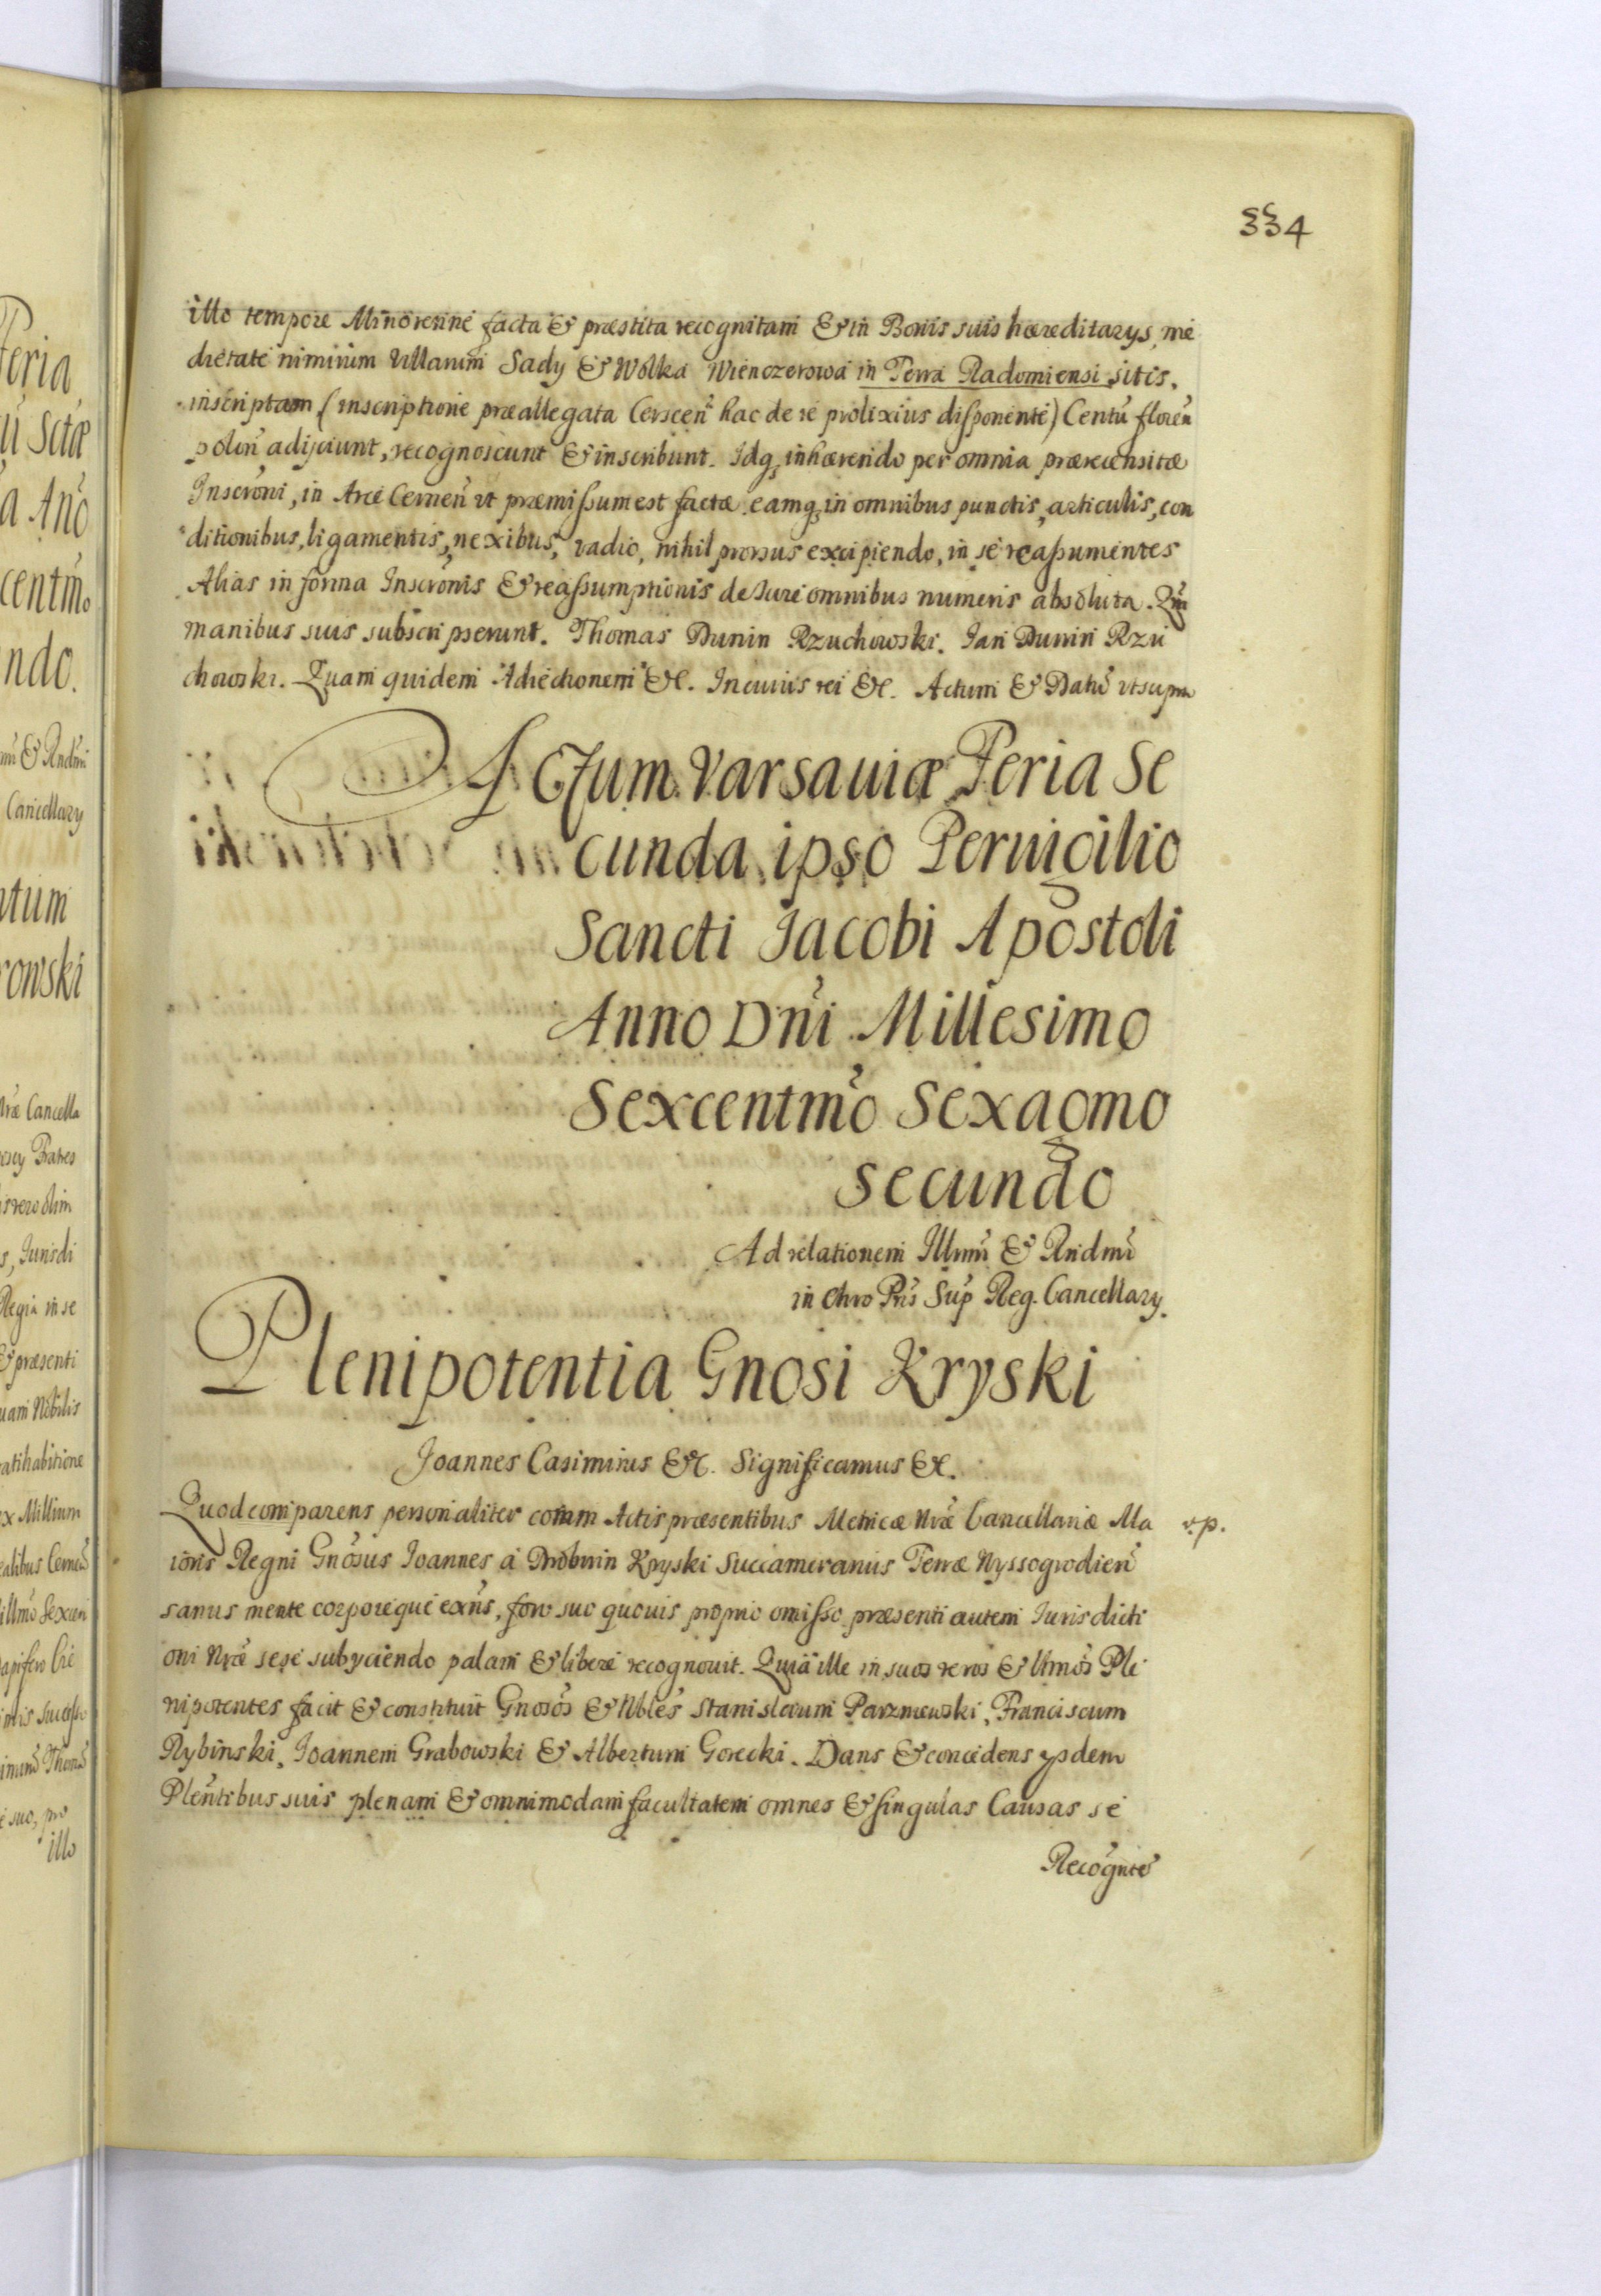 334
illo tempore Minorenne facta & præstita recognitam & in Bonis suis hæreditarys, me
dietate nimirum Villarum Sady & Wolka Wienczerowa in Terra Radomiensi sitis,
inscriptam (inscriptione præallegata Cerscen̄ hac de re prolixius disponente) Centū floren̄
polon̄ adijciunt, recognoscunt & inscribunt. Idq, inhærendo per omnia prærecensitæ
Inscrōni, in Arce Cernen̄ ut præmissum est factæ eamq, in omnibus punctis, articulis, con
ditionibus, ligamentis, nexibus, vadio, nihil prorsus excipiendo, in se reassumentes
Alias in forma Inscrōnis & reassumptionis de Iure omnibus numeris absoluta. Qui
manibus suis subscripserunt. Thomas Dunin Rzuchowski. Jan Dunin Rzu
chowski. Quam quidem Adiectionem &c. In cuius rei &c. Actum & Datū ut supra
Actum Varsaviæ Feria Se
cunda ipso Pervigilio
Sancti Jacobi Apostoli
Anno Dn̄i Millesimo
Sexcentm̄o Sexagmo
secundo
Ad relationem Illmī & Rndmī
in Chro Pris Sup̄ Reg. Cancellary.
Plenipotentia Gnosi Kryski
Joannes Casimirus &c. Significamus &c.
Quod comparens personaliter coram Actis præsentibus Metricæ Nræ Cancellariæ Ma v.p.
ioris Regni Gnōsus Joannes a Drobnin Kryski Succamerarius Terræ Wyssogrodien̄
sanus mente corporeque exn̄s, foro suo quovis proprio omisso præsenti autem Iurisdicti
oni Nræ sese subyciendo palam & libere recognovit. Quia ille in suos veros & ltmōs Ple
nipotentes facit & constituit Gnosōs & Nblēs Stanislaum Parzniewski, Franciscum
Rybinski, Joannem Grabowski & Albertum Gorecki. Dans & concedens ysdem
Plēntibus suis plenam & omnimodam facultatem omnes & singulas Causas se
Recōgnte